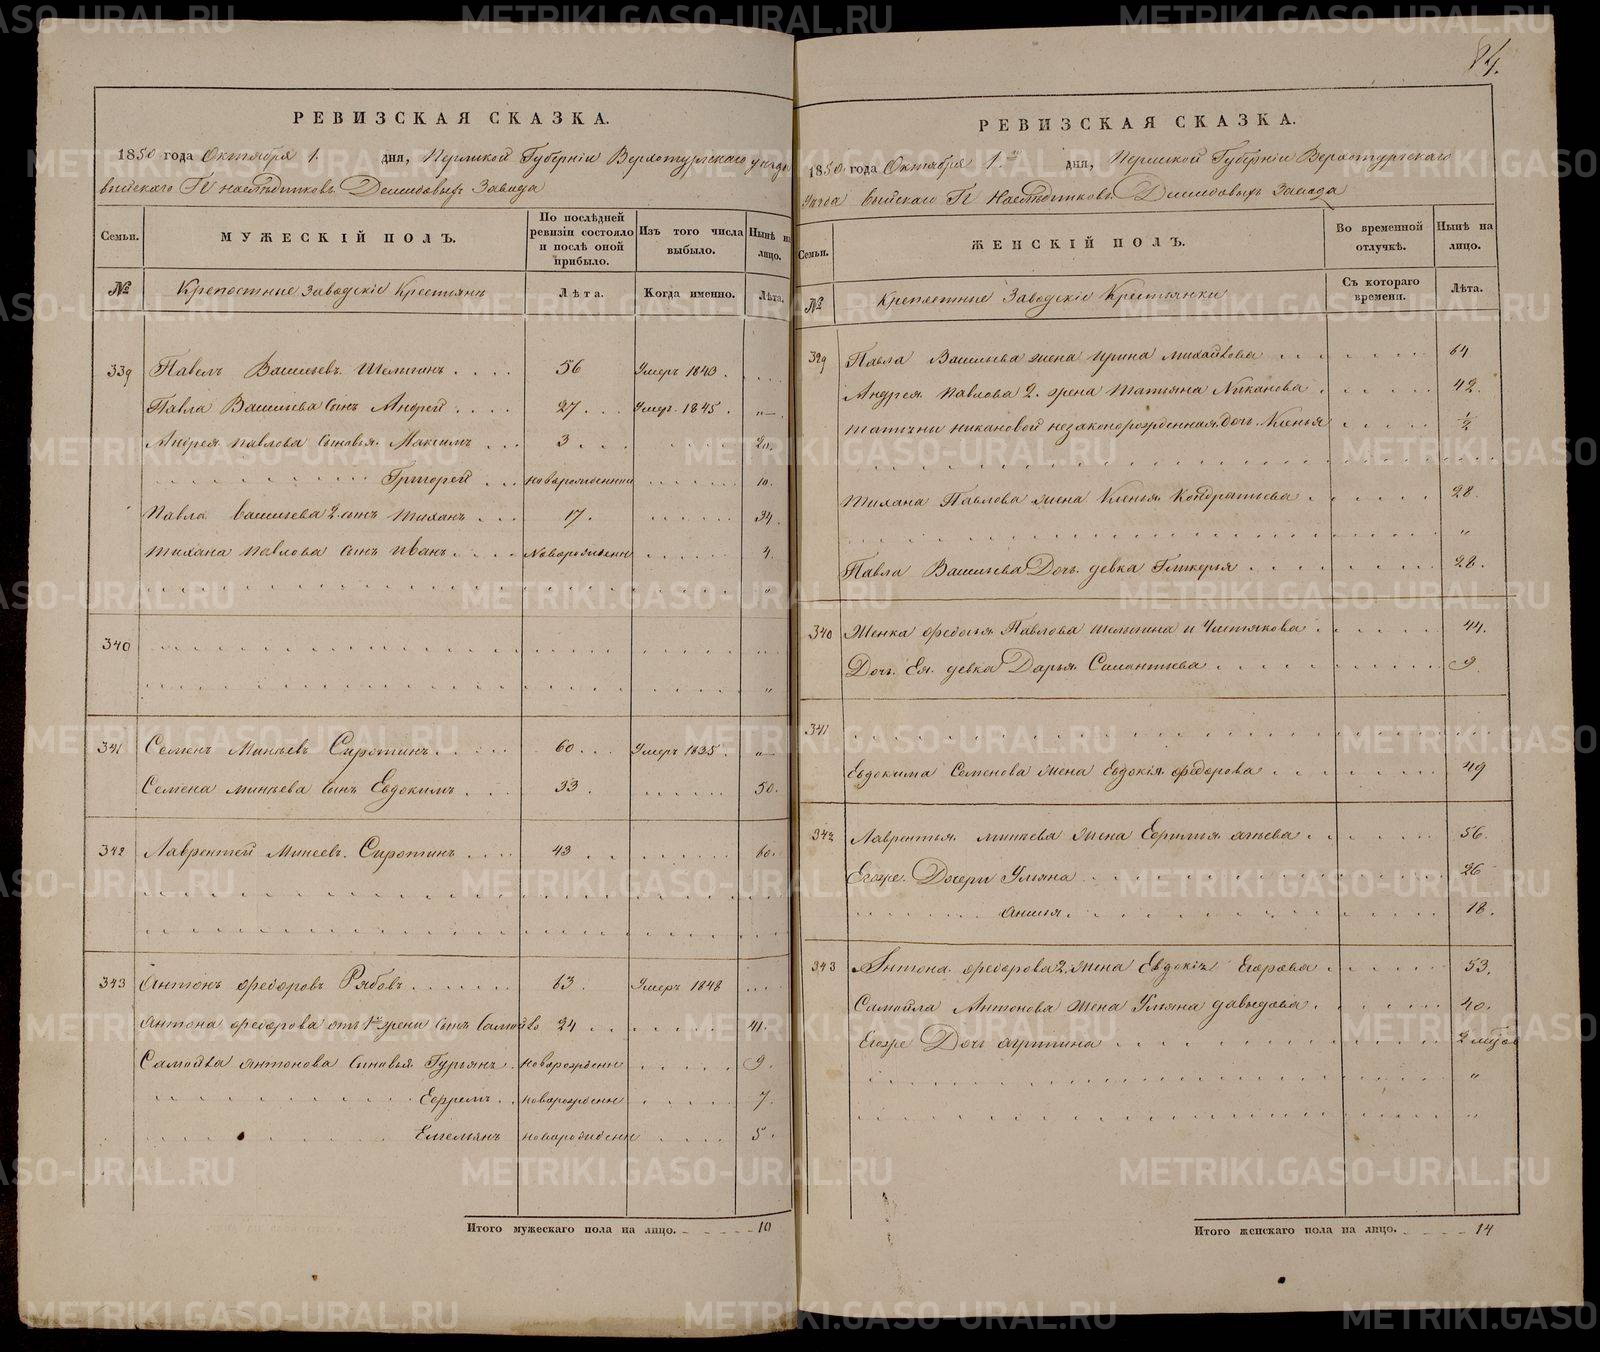 84.
РЕВИЗСКАЯ СКАЗКА.
1850 года Октября 1. дня, Пермской Губерніи Верхотурскаго уезда
Выйскаго Гг Наследниковъ Демидовыхъ Завода
Семьи.
МУЖЕСКІЙ ПОЛЪ.
По послѣдней ревизіи состояло и послѣ оной прибыло.
Изъ того числа выбыло.
Нынѣ на лицо.
№
Крепостные Заводскіе Крестьяне
Лѣта.
Когда именно.
Лѣта.
339 Павелъ Васильевъ Шелпинъ 56 Умеръ 1840.
Павла Васильева Сынъ Андрей 27 Умеръ 1845. "
Андрея Павлова Сыновья Максимъ 3 20.
Григорей новорожденный 10.
Павла Васильева 2. сынъ Тиханъ 17. 34.
Тихана Павлова Сынъ Иванъ Новорожденн 4.
"
340
"
"
341 Семенъ Минѣевъ Сиротинъ 60 Умеръ 1835. "
Семена Минѣева Сынъ Евдокимъ 33 50.
342 Лаврентей Минеевъ Сиротинъ 43 60.
343 Антонъ Федоровъ Рябовъ 63 Умеръ 1848
Антона Федорова отъ 1й жены Сынъ Самойло 24 41.
Самойла Антонова Сыновья Гурьянъ новорожденн 9.
Ефремъ новорожденн 7
Емельянъ новорожденн 5
Итого мужескаго пола на лицо. 10
РЕВИЗСКАЯ СКАЗКА.
1850 года Октября 1. го дня, Пермской Губерніи Верхотурскаго
Уезда Выйскаго Гг Наследниковъ Демидовыхъ Завода
Семьи.
ЖЕНСКІЙ ПОЛЪ.
Во временной отлучкѣ.
Нынѣ на лицо.
№
Крепостные Заводскіе Крестьянки
Съ котораго времени.
Лѣта.
339 Павла Васильева жена Ирина Михайлова 64
Андрея Павлова 2. жена Татьяна Никанова 42.
Татьяни Никановой незаконорожденная дочь Ксенья ½
Тихана Павлова жена Ксенья Кондратьева 28.
"
Павла Васильева Дочь девка Гликерья 28.
340 Женка Федосья Павлова Шелпина и Чистякова 44.
Дочь Ея девка Дарья 9
341
Евдокима Семенова жена Евдокія Федорова 49
342 Лаврентья Минеева жена Ефимья 56.
Егоже Дочери Ульяна 26
18.
343 Антона Федорова 2. жена Евдокія Егорова 53.
Самойла Антонова жена Ульяна Давыдова 40.
Егоже Дочь 2 месяц
"
"
Итого женскаго пола на лицо. 14
METRIKI.GASO-URAL.RU